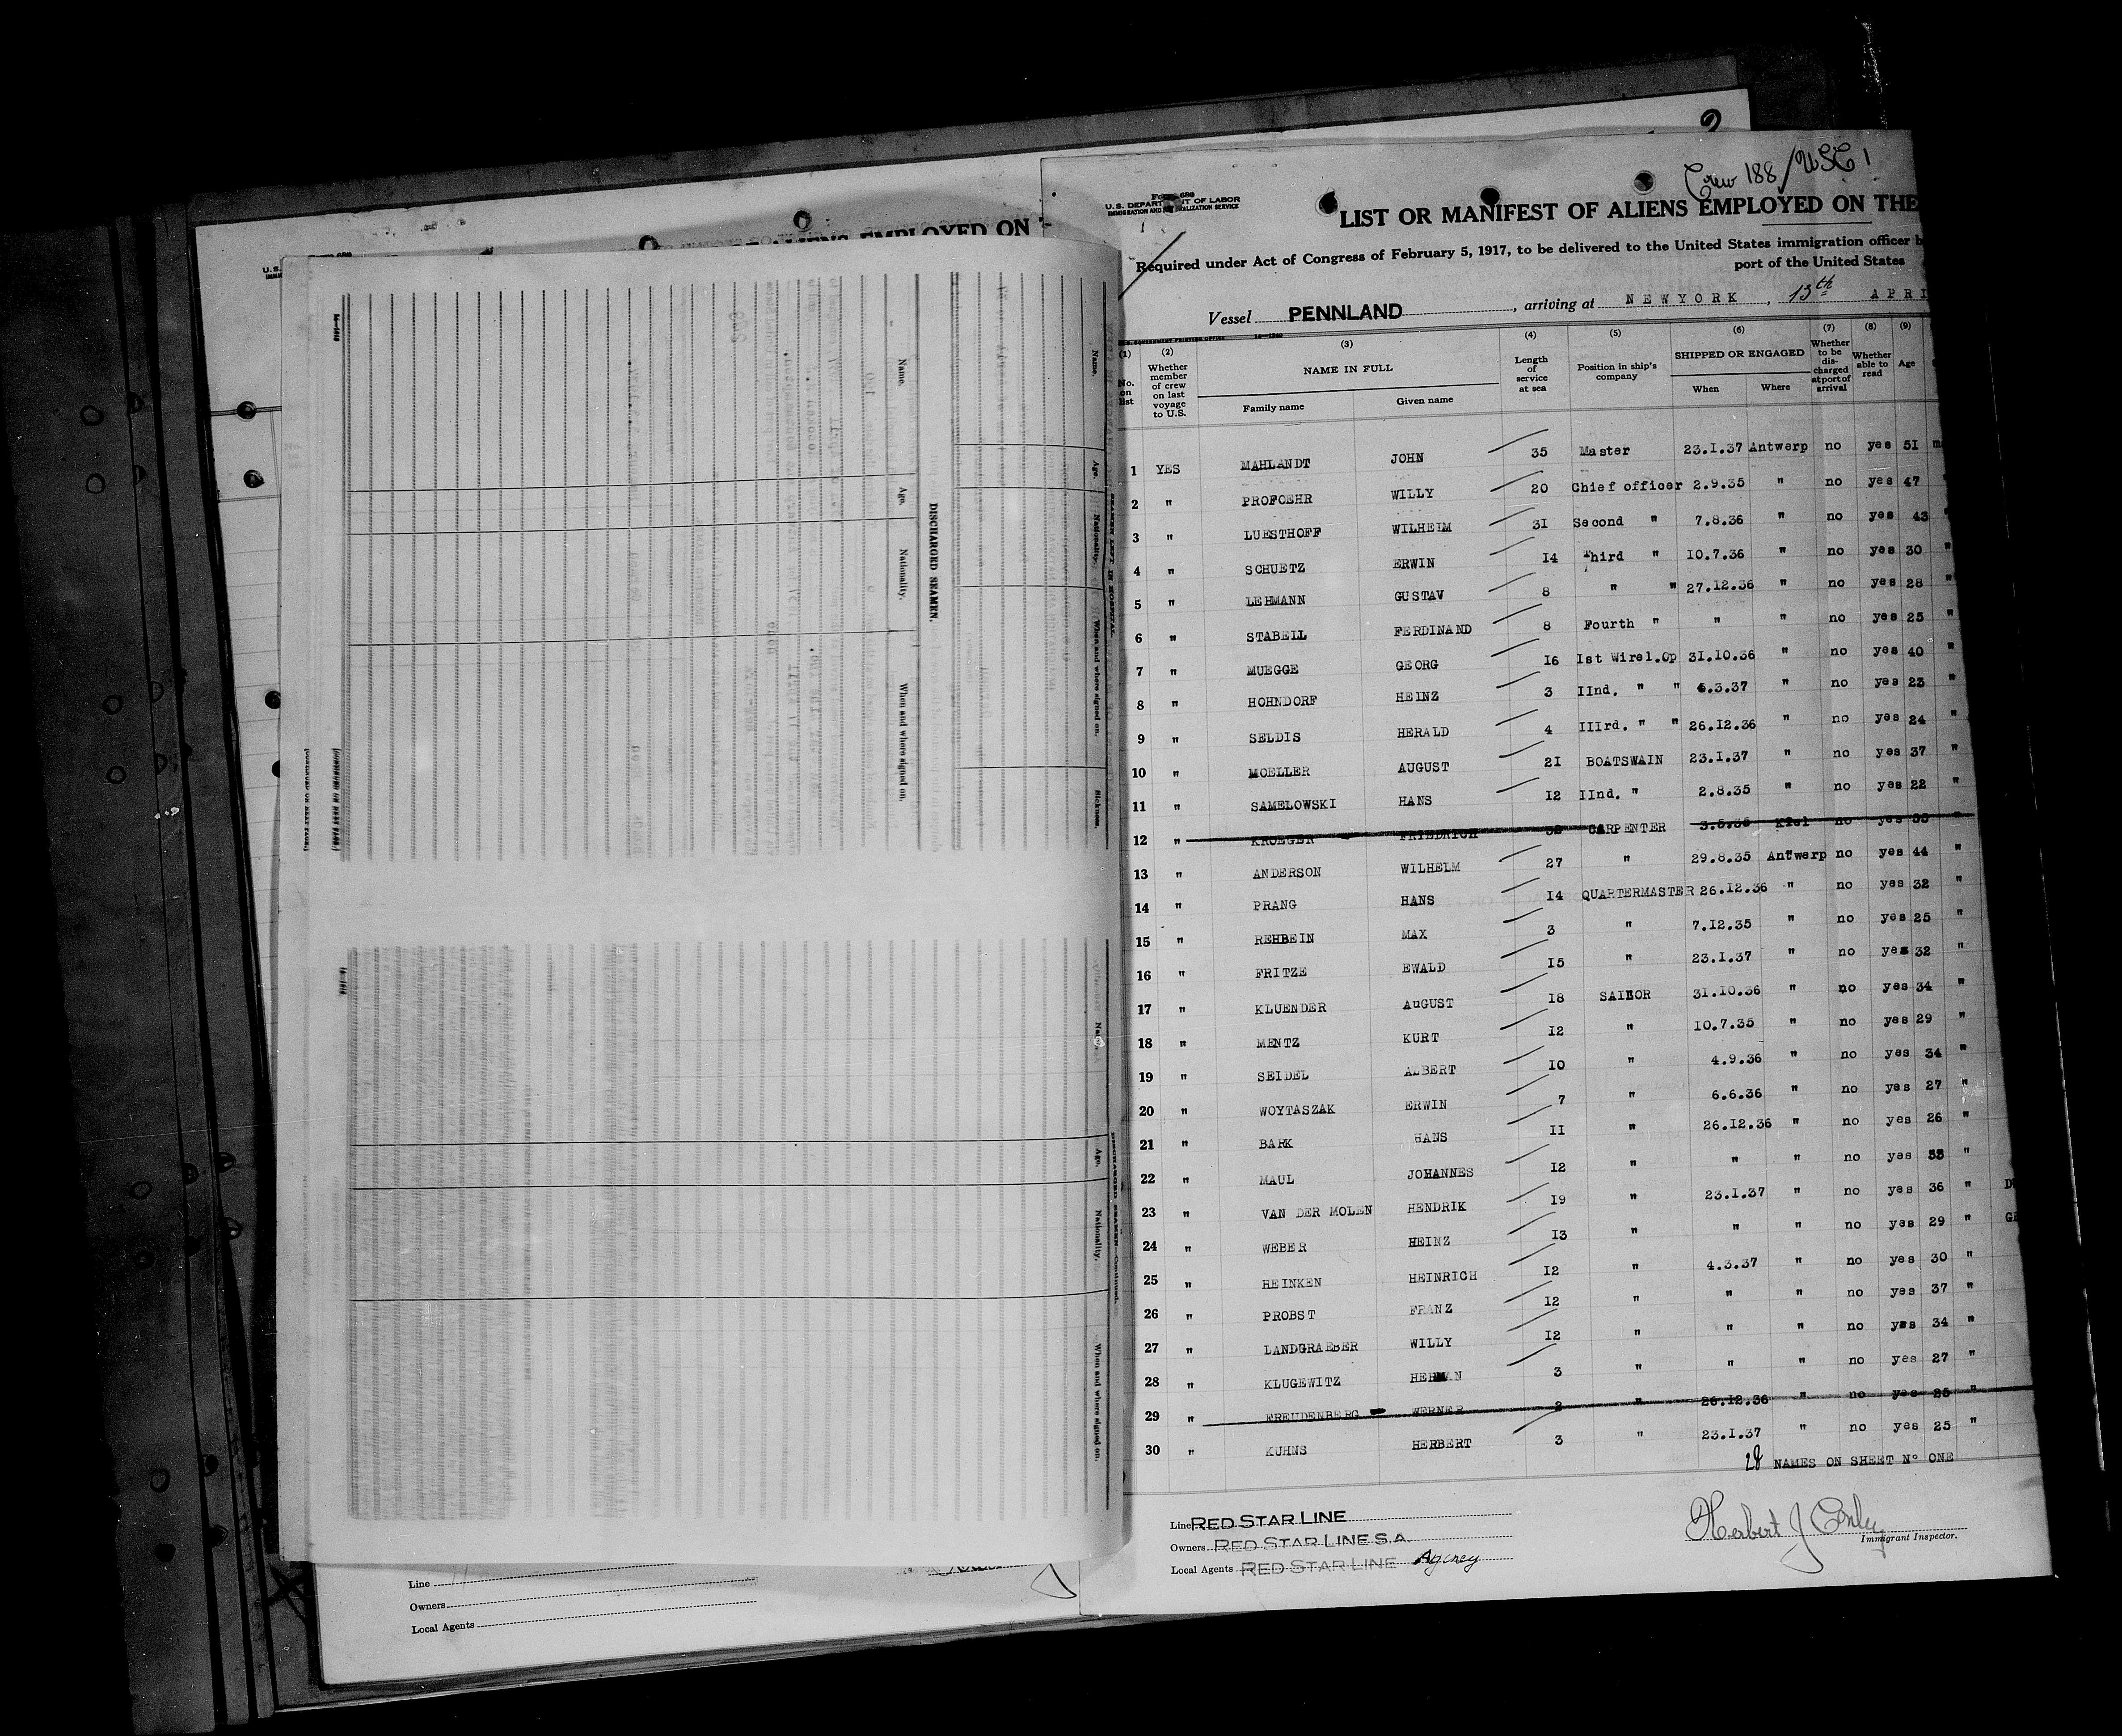 2
U.S.
ALIENS EMPLOYED ON
Crew 188/USC 1
U.S. DEPARTMENT OF LABOR
IMMIGRATION AND NATURALIZATION SERVICE
LIST OR MANIFEST OF ALIENS EMPLOYED ON THE
Required under Act of Congress of February 5, 1917, to be delivered to the United States immigration officer b
port of the United States
Vessel PENNLAND, arriving at NEWYORK, 13th APRI
(1) (2) (3) (4) (5) (6) (7) (8) (9)
No. on list Whether member of crew on last voyage to U.S. NAME IN FULL Length of service at sea Position in ship's company SHIPPED OR ENGAGED Whether to be discharged at port of arrival Whether able to read Age
Family name Given name When Where
1 YES MAHLANDT JOHN 35 Master 23.I.37 Antwerp no yes 51 m
2 " PROFOEHR WILLY 20 Chief officer 2.9.35 " no yes 47
3 " LUESTHOFF WILHEIM 3I Second " 7.8.36 " no yes 43 "
4 " SCHUETZ ERWIN I4 Third " I0.7.36 " no yes 30 "
5 " LEHMANN GUSTAV 8 " " 27.I2.36 " no yes 28 "
6 " STABELL FERDINAND 8 Fourth " " " no yes 25 "
7 " MUEGGE GEORG I6 Ist Wirel.Op 3I.I0.36 " no yes 40 "
8 " HOHNDORF HEINZ 3 IInd. " " 6.3.37 " no yes 23 "
9 " SELDIS HERALD 4 IIIrd. " " 26.I2.36 " no yes 24 "
10 " MOELLER AUGUST 2I BOATSWAIN 23.I.37 " no yes 37 "
11 " SAMELOWSKI HANS I2 IInd. " 2.8.35 " no yes 22 "
12 " KROEGER FRIEDRICH CARPENTER Kiel no yes
13 " ANDERSON WILHELM 27 " 29.8.35 Antwerp no yes 44 "
14 " PRANG HANS I4 QUARTERMASTER 26.I2.36 " no yes 32 "
15 " REHBEIN MAX 3 " 7.I2.35 " no yes 25 "
16 " FRITZE EWALD I5 " 23.I.37 " no yes 32 "
17 " KLUENDER AuGUST I8 SAILOR 3I.I0.36 " no yes 34 "
18 " MENTZ KURT I2 " I0.7.35 " no yes 29 "
19 " SEIDEL ALBERT I0 " 4.9.36 " no yes 34 "
20 " WOYTASZAK ERWIN 7 " 6.6.36 " no yes 27 "
21 " BARK HANS II " 26.I2.36 " no yes 26 "
22 " MAUL JOHANNES I2 " " " no yes 33 "
23 " VAN DER MOLEN HENDRIK I9 " 23.I.37 " no yes 36 " D
24 " WEBER HEINZ I3 " " " no yes 29 " GE
25 " HEINKEN HEINRICH I2 " 4.3.37 " no yes 30 "
26 " PROBST FRANZ I2 " " " no yes 37 "
27 " LANDGRAEBER WILLY I2 " " " no yes 34 "
28 " KLUGEWITZ HERMAN 3 " " " no yes 27 "
29 " FREUDENBERG WERNER 2 " 26.I2.36 " no yes 25 "
30 " KUHNS HERBERT 3 " 23.I.37 " no yes 25 "
28 NAMES ON SHEET N° ONE
Line RED STAR LINE
Owners RED STAR LINE S.A.
Local Agents RED STAR LINE Agency
Immigrant Inspector.
Name. Age. Nationality. When and where signed on. Sickness.
SEAMEN LEFT IN HOSPITAL
DISCHARGED SEAMEN.
Name. Age. Nationality. When and where signed on.
DISCHARGED SEAMEN—Continued.
Name. Age. Nationality. When and where signed on.
Line
Owners
Local Agents